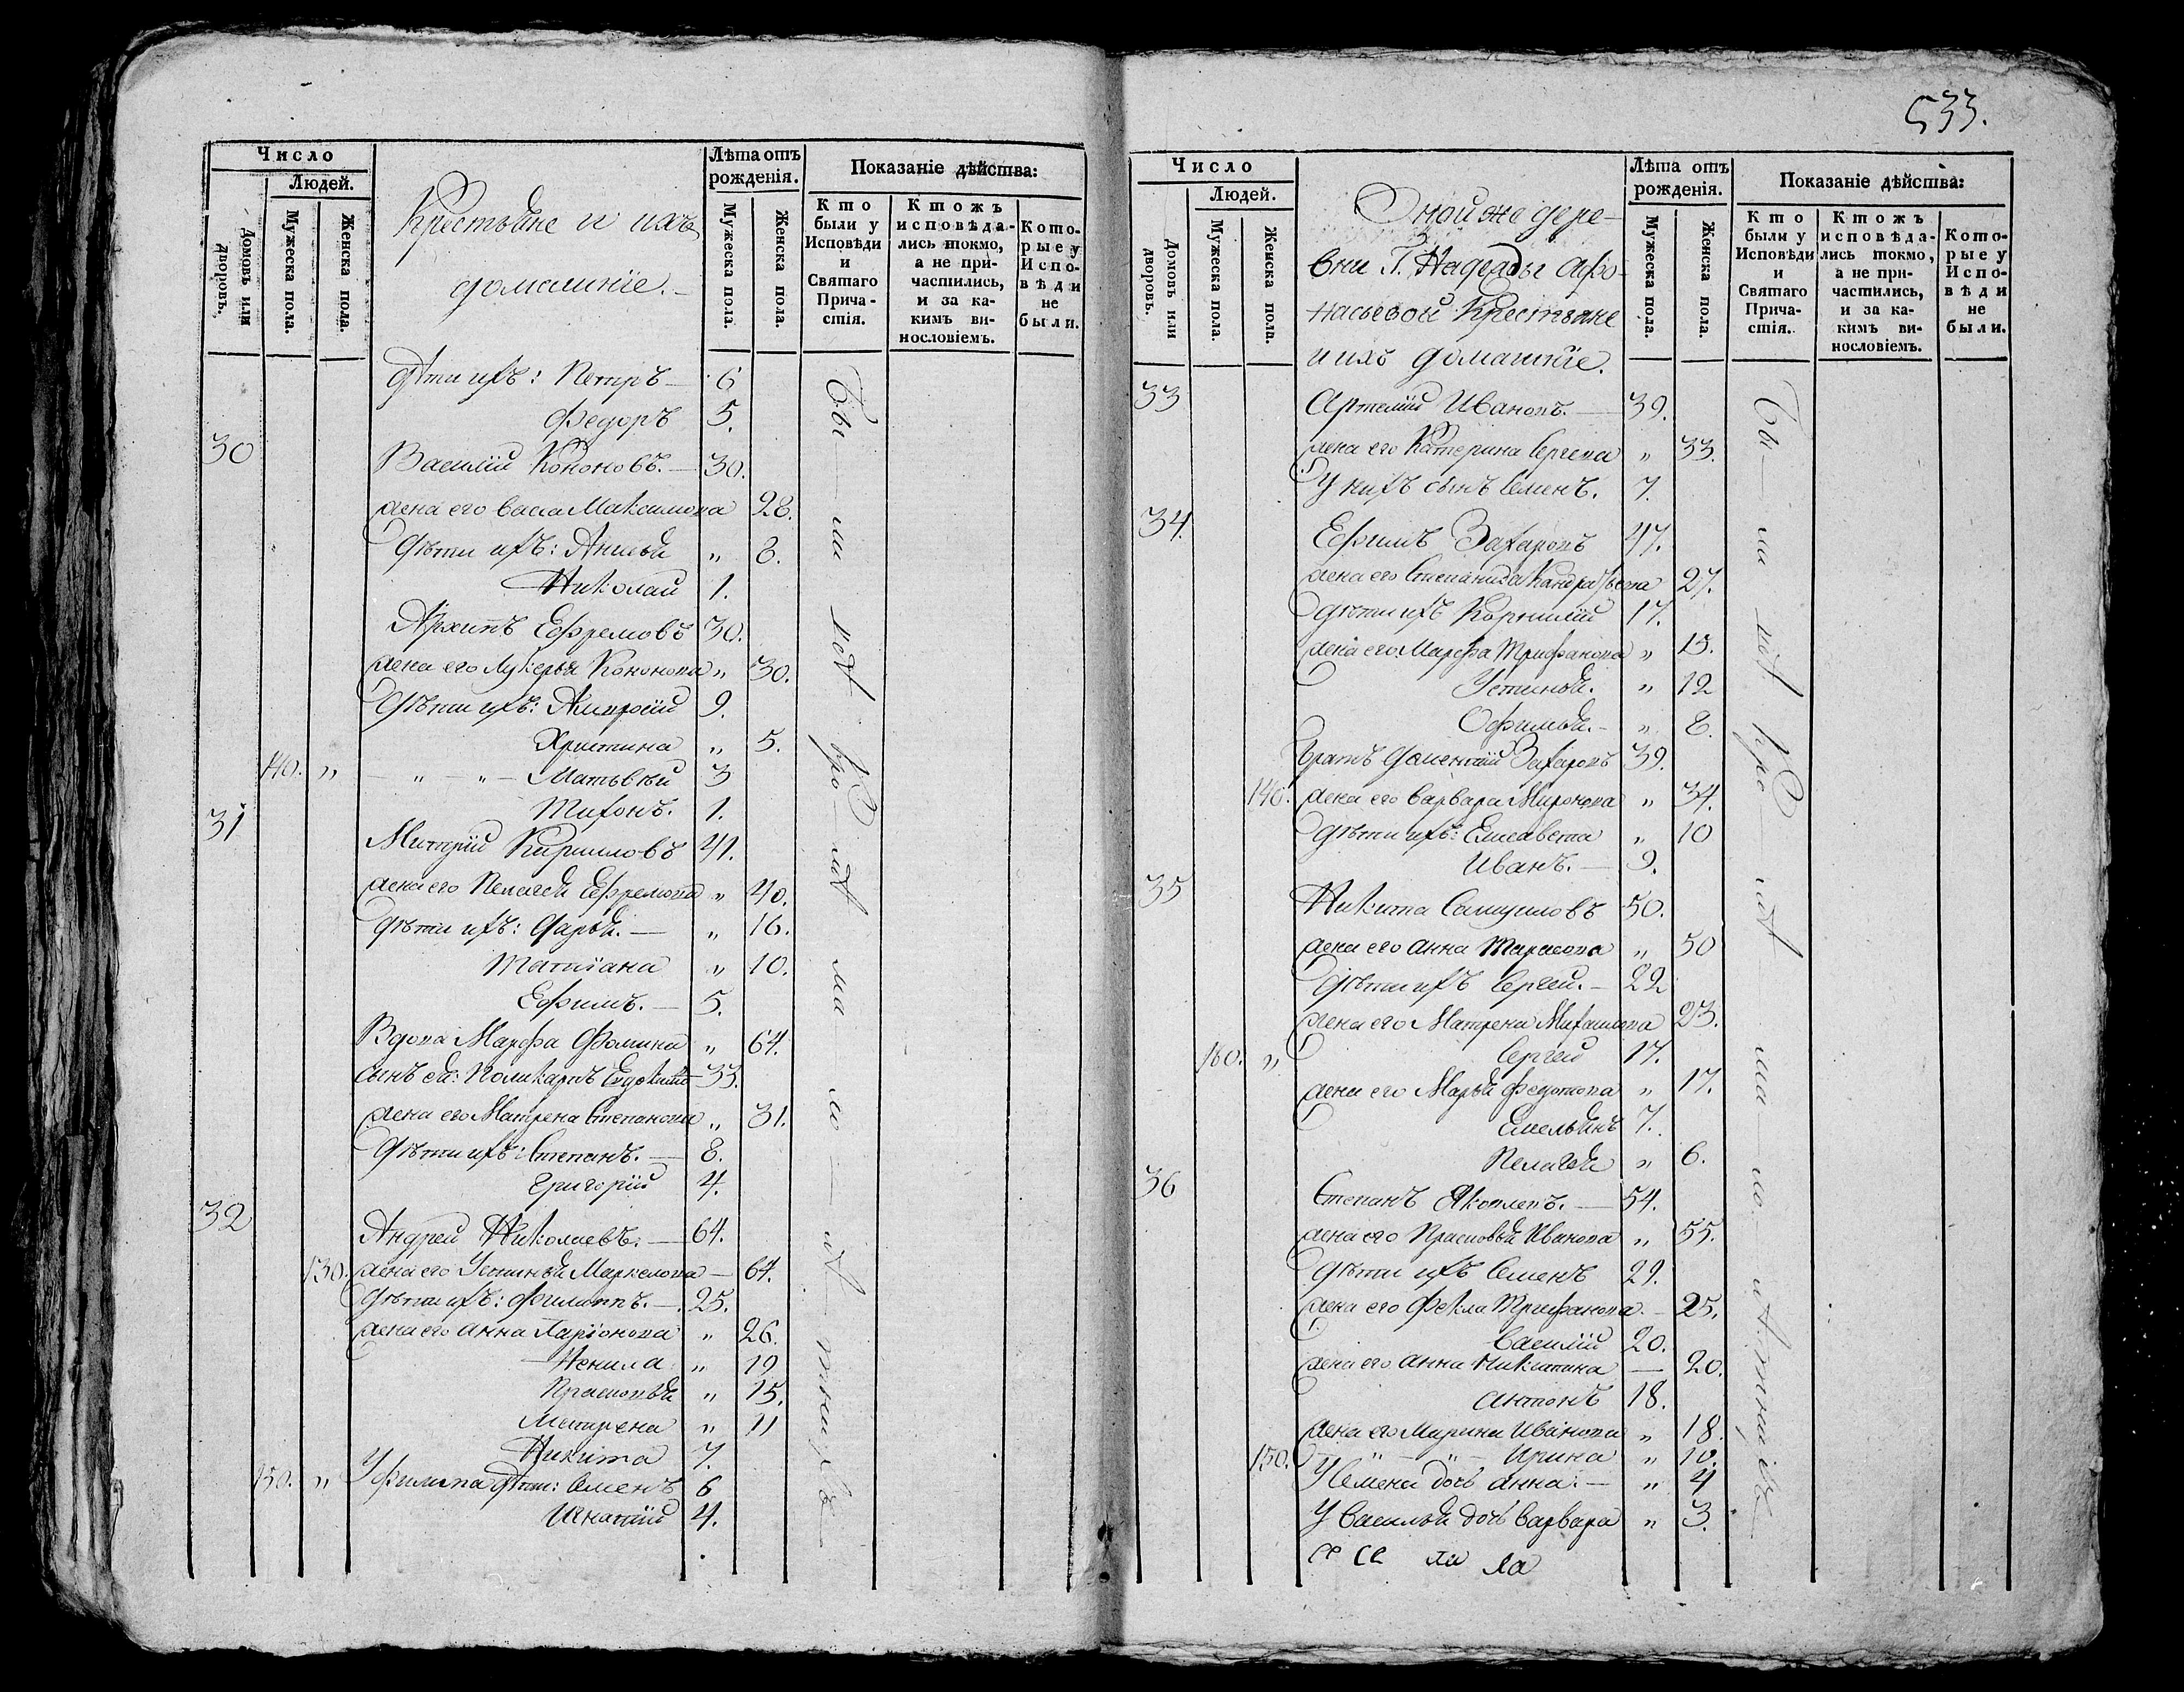 533.
Число
Людей.
Домовъ или дворовъ.
Мужеска пола.
Женска пола.
Крестьяне и ихъ
домашніе.
Лѣта отъ рожденія.
Мужеска пола.
Женска пола.
Показаніе дѣйства:
Кто были у Исповѣди и Святаго Причастія.
Ктожъ исповѣдались токмо, а не причастились, и за какимъ винословіемъ.
Которые у Исповѣди не были.
дѣти ихъ: Петръ — 6
Федоръ 5.
30 Василій Кононовъ. — 30.
жена его Васса Максимова 28.
Дѣти ихъ: Анисья „ 8.
Николай 1.
Архипъ Ефремовъ 30.
жена его Лукерья Кононова „ 30.
Дѣти ихъ: 9.
Христина „ 5.
140. „ — „ — „ — Матьвѣй 3
Тихонъ. 1.
31 Митрій Кириловъ 41.
жена его Пелагея Ефремова „ 40.
Дѣти ихъ: Дарья. — „ 16.
Татіана „ 10.
Ефимъ. — 5.
Вдова Марфа Фомина „ 64.
сынъ ея: Поликарпъ — 33.
жена его Матрена Степанова „ 31.
Дѣти ихъ: Степанъ. — 8.
Григорій 4.
32 Андрей Николаевъ. — 64.
130. жена его Устинья Маркелова — 64.
Дѣти ихъ: Филиппъ. — 25.
жена его Анна Ларіонова „ 26.
Ненила „ 19
Прасковья „ 15.
Матрена „ 11
Никита 7.
150. „ У Филипа дѣти: Семенъ 6
Игнатій 4.
Бы — ли
Число
Людей.
Домовъ или дворовъ.
Мужеска пола.
Женска пола.
Оной же дере-
вни Г. Надежды Афо-
насьевой Крестьяне
и ихъ домашніе.
Лѣта отъ рожденія.
Мужеска пола.
Женска пола.
Показаніе дѣйства:
Кто были у Исповѣди и Святаго Причастія.
Ктожъ исповѣдались токмо, а не причастились, и за какимъ винословіемъ.
Которые у Исповѣди не были.
33 Артемій Ивановъ. — 39.
жена его Катерина Сергева „ 33.
У нихъ сынъ Семенъ. 7.
34. Ефимъ Захаровъ 47.
жена его Степанида 27.
дѣти ихъ Корнилій 17.
жена его Марфа Трифанова „ 19.
Устинья. „ 12
Офимья. — „ 8.
братъ Дементій Захаровъ 39.
140. жена его Варвара Миронова „ 34.
Дѣти ихъ: Елисавета „ 10
Иванъ. — 9.
35 Никита Самуиловъ 50.
жена его Анна Тарасова „ 50
Дѣти ихъ Сергей. — 22
жена его Матрена Михаилова 23.
160. „ Сергей 17.
жена его Марья Федотова „ 17.
Емельянъ 7.
Пелагея „ 6.
36 Степанъ Яковлевъ. — 54.
жена его Прасковья Иванова „ 55.
Дѣти ихъ Семенъ 29.
жена его Фекла Трифанова. — 25.
Василій 20.
жена его Анна Никитина — 20.
Антонъ 18.
жена его Марина Иванова „ 18
150. — „ — „ — Ирина „ 10.
У Семена дочь Анна: — „ 4
У Василья дочь Варвара „ 3.
Бы — ли